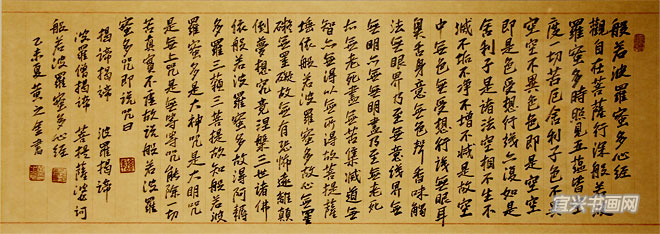 般若波羅蜜多心經
觀自在菩薩行深般若波
羅蜜多時照見五蘊皆空
度一切苦厄舍利子色不異
空空不異色色即是空空
即是色受想行識亦復如是
舍利子是諸法空相不生不
滅不垢不淨不增不減是故空
中無色無受想行識無眼耳
鼻舌身意無色聲香味觸
法無眼界乃至無意識界無
無明亦無無明盡乃至無老死
亦無老死盡無苦集滅道無
智亦無得以無所得故菩提薩
埵依般若波羅蜜多故心無罣
礙無罣礙故無有恐怖遠離顛
倒夢想究竟涅槃三世諸佛
依般若波羅蜜多故得阿耨
多羅三藐三菩提故知般若波
羅蜜多是大神咒是大明咒
是無上咒是無等等咒能除一切
苦真實不虛故說般若波羅
蜜多咒即說咒曰
揭諦揭諦 波羅揭諦
波羅僧揭諦 菩提薩婆訶
般若波羅蜜多心經
乙未夏黃之金書
宜兴书画网